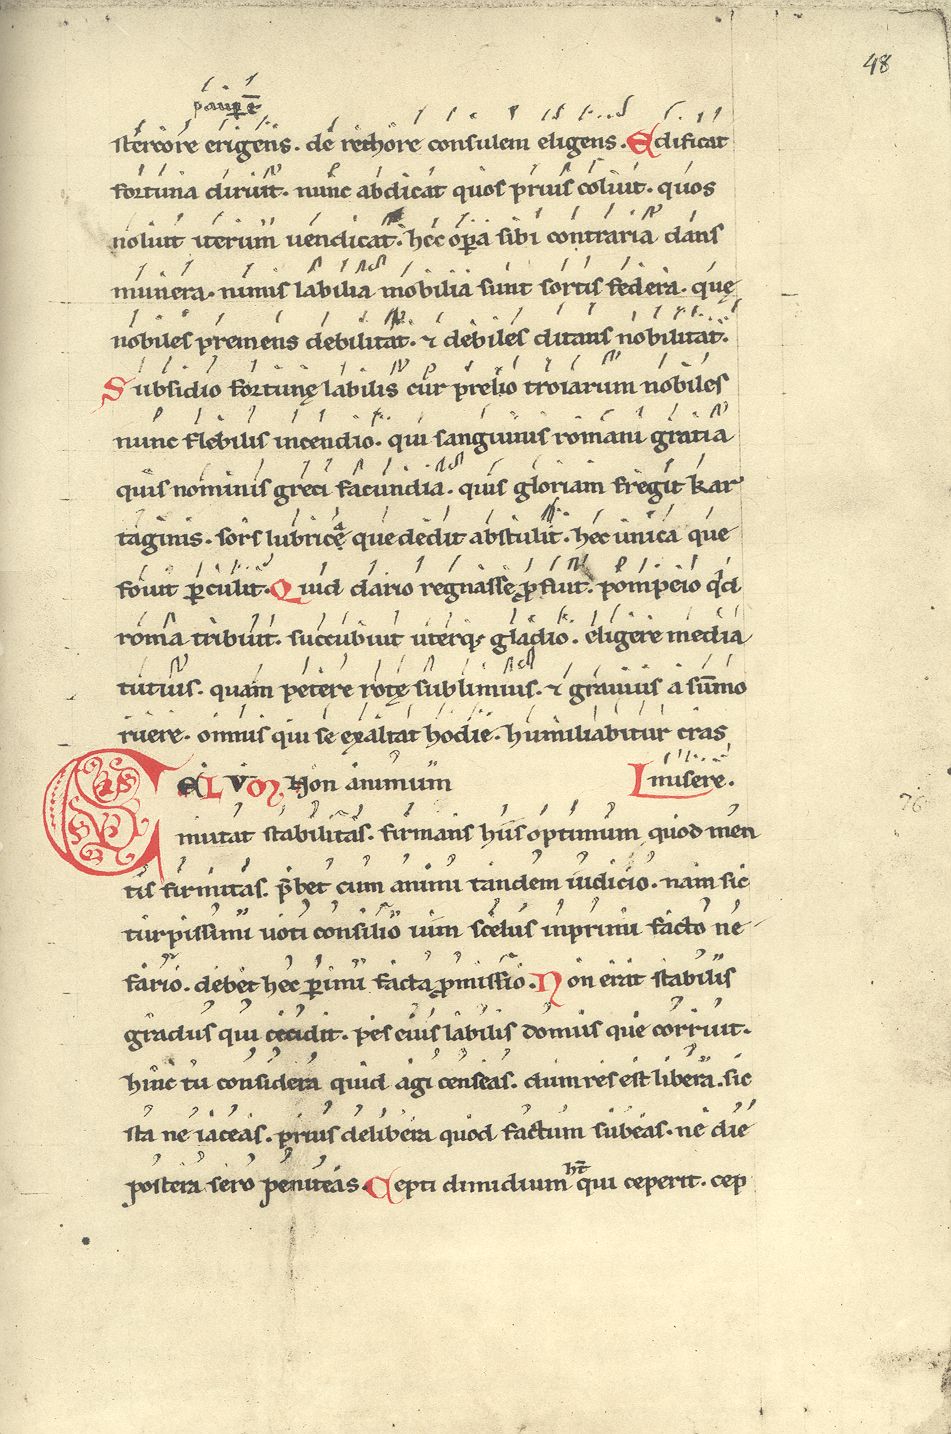 48
paup̄ē
stercore erigens. de rethore consulem eligens. Edificat
fortuna diruit. nunc abdicat quos prius coluit. quos
noluit iterum uendicat. hec oꝑa sibi contraria dans
munera. nimis labilia mobilia sunt sortis federa. quę
nobiles premens debilitat. ⁊ debiles ditans nobilitat.
Subsidio fortunę labilis cur prelio troiarum nobiles
nunc flebilis incendio. qui sanguinis romani gratia
quis nominis greci facundia. quis gloriam fregit kar
taginis. sors lubricę que dedit abstulit. hec unica que
fouit ꝑculit. Quid dario regnasse ꝓfuit. pompeio qd
roma tribuit. succubuit uterq; gladio. eligere media
tutius. quam petere rotę sublimius. ⁊ grauius a sūmo
ruere. omnis qui se exaltat hodie. humiliabitur cras
CELVM Non animum misere.
mutat stabilitas. firmans hiis optimum quod men
tis firmitas. p̄bet cum animi tandem iudicio. nam sic
turpissimi uoti consilio uim scelus inprimi facto ne
fario. debet hec ꝑimi facta ꝓmissio. Non erat stabilis
gradus qui cecidit. pes eius labilis domus que corruit.
hinc tu considera quid agi censeas. dum res est libera. sic
sta ne iaceas. prius delibera quod factum subeas. ne die
postera sero peniteas. Cepti dimidium ht̄ qui ceperit. cep
76